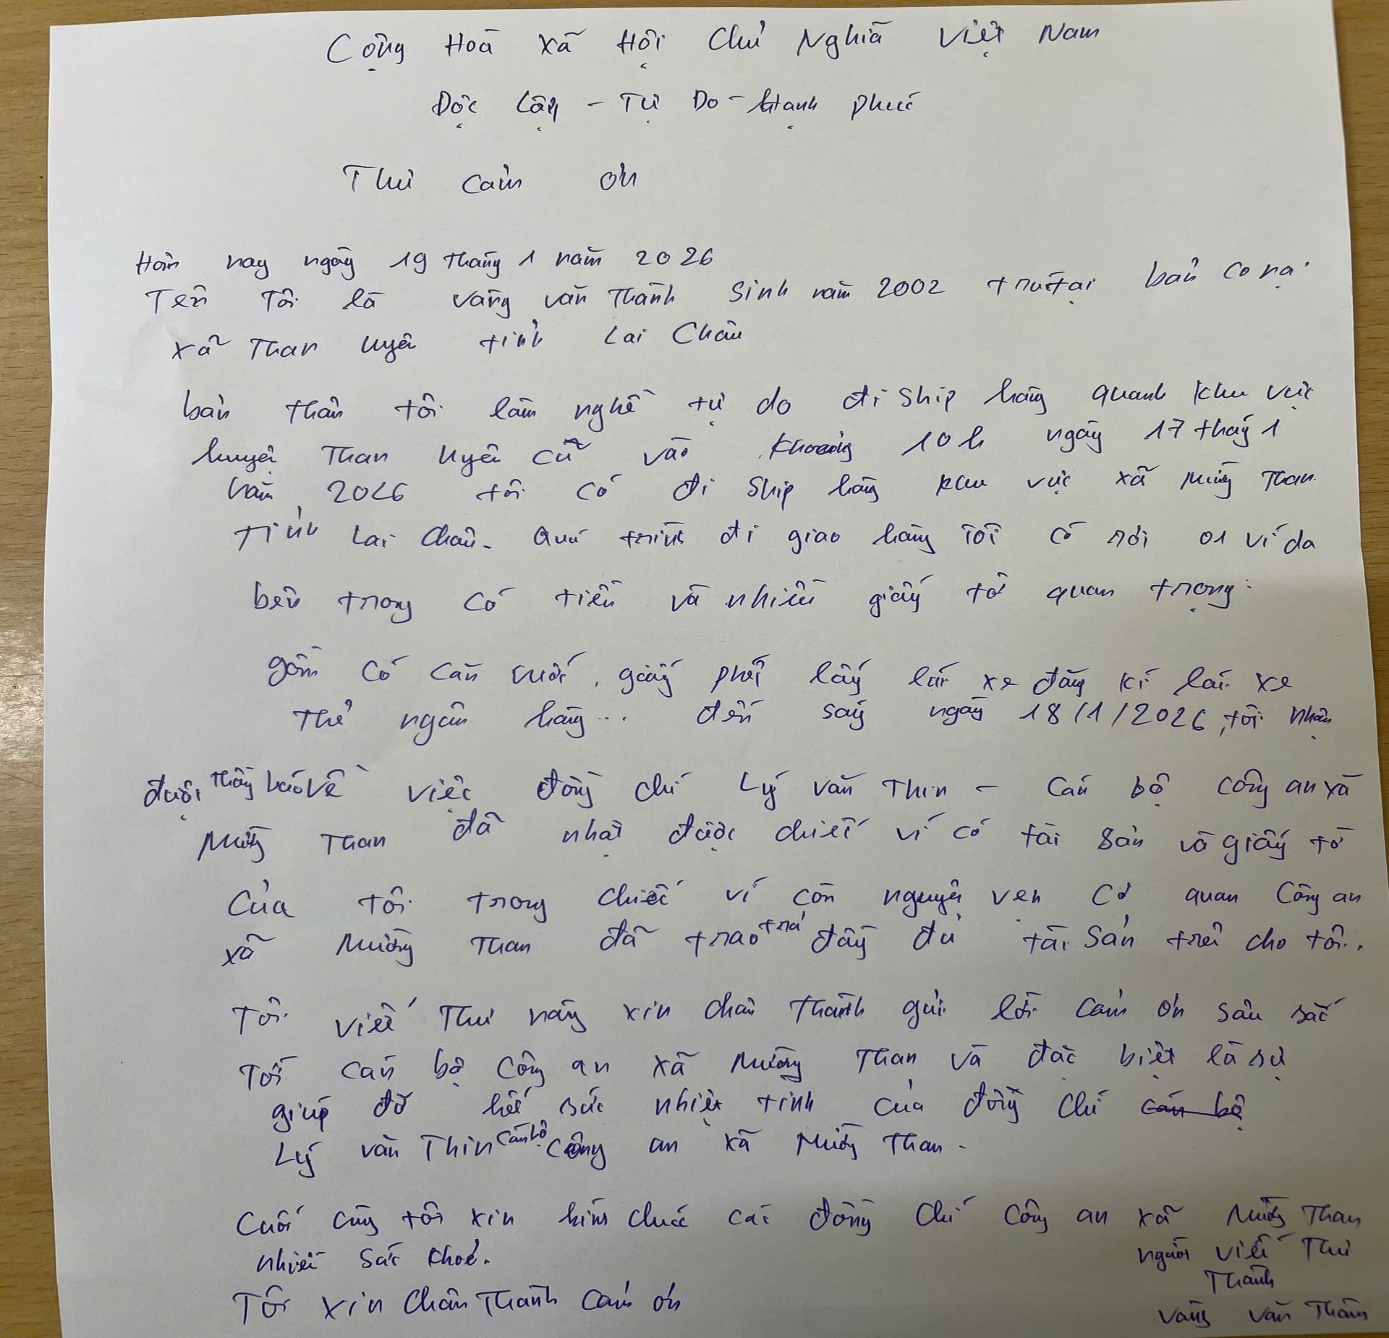 Cộng Hoà Xã Hội Chủ Nghĩa Việt Nam
Độc Lập - Tự Do - Hạnh phúc
Thư cảm ơn
Hôm nay ngày 19 tháng 1 năm 2026
Tên Tôi là vàng văn Thành Sinh năm 2002 trú tại bản co nọi
xã Than Uyên tỉnh Lai Châu
bản thân tôi làm nghề tự do đi Ship hàng quanh khu vực
huyện Than Uyên cũ vào khoảng 10h ngày 17 tháng 1
năm 2026 tôi có đi Ship hàng khu vực xã Mường Than
Tỉnh Lai Châu. Quá trình đi giao hàng Tôi có rơi 01 ví da
bên trong có tiền và nhiều giấy tờ quan trọng:
gồm có căn cước, giấy phép lấy lái xe đăng kí lái xe
Thẻ ngân hàng... đến sáng ngày 18/1/2026, tôi nhận
được thông báo về việc đồng chí Lý văn Thìn - Cán bộ công an xã
Mường Than đã nhặt được chiếc ví có tài sản và giấy tờ
của tôi trong chiếc ví còn nguyên vẹn Cơ quan Công an
xã Mường Than đã trao trả đầy đủ tài sản trả cho tôi.
Tôi viết Thư này xin chân thành gửi lời cảm ơn sâu sắc
Tới cán bộ Công an xã Mường Than và đặc biệt là sự
giúp đỡ hết sức nhiệt tình của đồng chí cán bộ
Lý văn Thìn cán bộ công an xã Mường Than.
Cuối cùng tôi xin kính chúc các đồng chí Công an xã Mường Than
nhiều sức khoẻ. người viết Thư
Thành
Tôi xin chân Thành cảm ơn vàng văn Thành